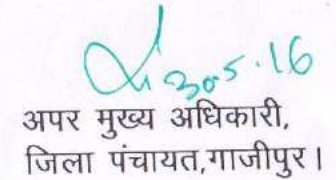 30.5.16
अपर मुख्य अधिकारी,
जिला पंचायत,गाजीपुर।